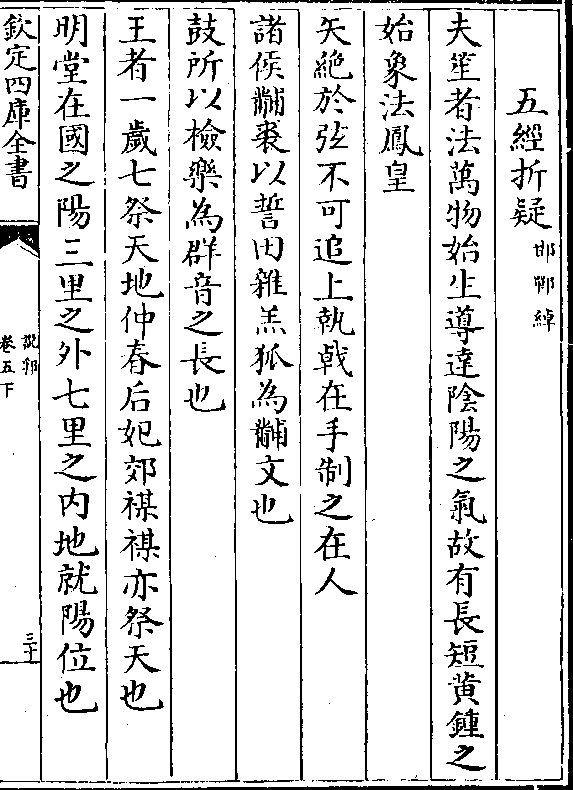 五經折疑 邯鄲綽
夫笙者法萬物始生導達陰陽之氣故有長短黃鍾之
始象法鳳皇
矢絶於弦不可追上執戟在手制之在人
諸侯黼裘以誓田雜羔狐為黼文也
鼓所以檢樂為群音之長也
王者一歲七祭天地仲春后妃郊禖禖亦祭天也
明堂在國之陽三里之外七里之内地就陽位也
欽定四庫全書
說郛
卷五下
三十